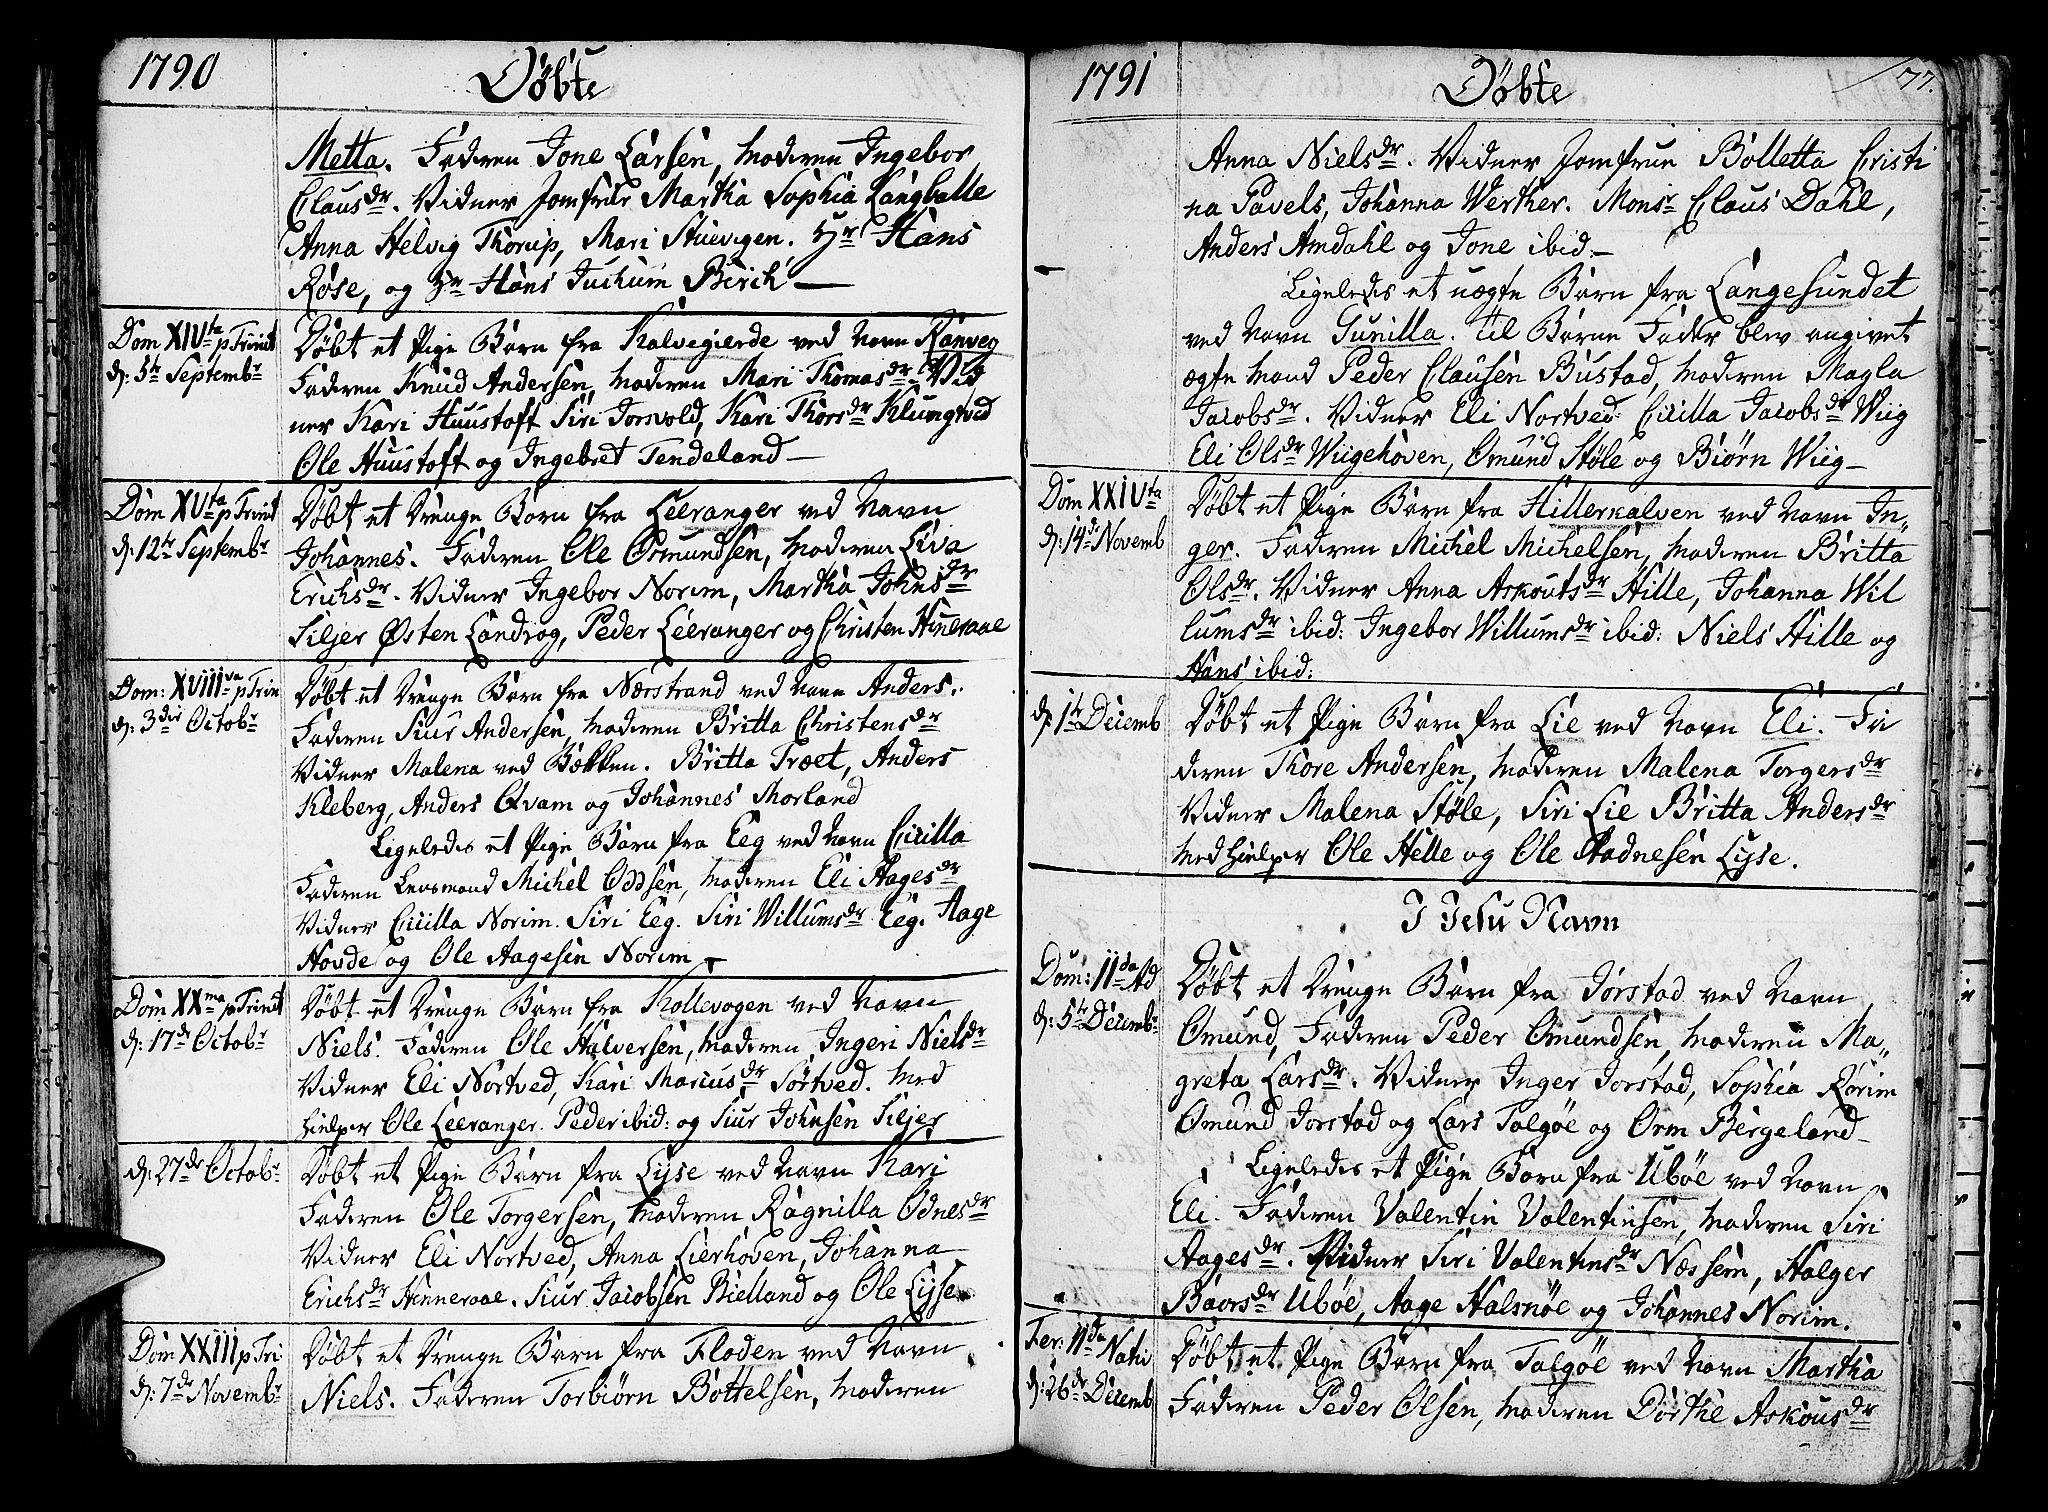 1790
Døbte
Metta. Faderen Jone Larsen, Moderen Ingebor
Clausdr. Vidner Jomfrue Martha Sophia Langballe
Anna Helvig Thorup, Mari Stuevigen. Hr Hans
Røse, og Hr Hans Juchum Birch —
Dom XIVta p Trinit
d: 5te Septembr
Døbt et Pige Barn fra Kalvegierde ved Navn Ranveg
Faderen Knud Andersen, Moderen Mari Thomasdr. Vid
ner Kari Huustoft Siri Jorvold, Kari Thorsdr Klungtved
Ole Huustoft og Ingebret Tendeland —
Dom XVta p Trinit
d: 12te Septembr
Døbt et Drenge Barn fra Leeranger ved Navn
Johannes. Faderen Ole Osmundsen, Moderen Liva
Erichsdr. Vidner Ingebor Norim, Martha Johnsdr
Siljer Østen Landrog, Peder Leeranger og Christen Hineraae
Dom: XVIIIva p Trin
d: 3die Octobr
Døbt et Drenge Barn fra Nærstrand ved Navn Anders.
Faderen Siur Andersen, Moderen Britta Christensdr
Vidner Malena ved Bækken. Britta Træet, Anders
Kleberg, Anders Qvam og Johannes Morland
Ligeledes et Pige Barn fra Eeg ved Navn Cicilla
Faderen Lensmand Michel Oddsen, Moderen Eli Aagesdr
Vidner Cicilla Norim. Siri Eeg. Siri Willumsdr Eeg. Aage
Hovde og Ole Aagesen Norim —
Dom XXma p Trinit
d: 17de Octobr
Døbt et Drenge Barn fra Kollevogen ved Navn
Niels. Faderen Ole Halversen, Moderen Ingeri Nielsdr
Vidner Eli Nortved, Kari Mariusdr Sørtved. Med
hielper Ole Leeranger. Peder ibid: og Siur Johnsen Siljer
d: 27de Octobr
Døbt et Pige Barn fra Lyse ved Navn Kari
Faderen Ole Torgersen, Moderen Ragnilla Odnesdr
Vidner Eli Nortved, Anna Lierhoven, Johanna
Erichsdr Hinneraae. Siur Jacobsen Bielland og Ole Lyse.
Dom XXIII p Tri
d: 7de Novembr
Døbt et Drenge Barn fra Floden ved Navn
Niels. Faderen Torbiørn Bottelsen, Moderen
1791
Døbte
77.
Anna Nielsdr. Vidner Jomfrue Bolletta Cristi
na Pavels, Johanna Werther. Monsr Claus Dahl,
Anders Amdahl og Jone ibid —
Ligeledes et uægte Barn fra Langesundet
ved Navn Gunilla. Til Barne Fader blev angivet
ægte Mand Peder Clausen Bustad, Moderen Magla
Jacobsdr. Vidner Eli Nortved. Cicilla Jacobsdr Wiig
Eli Olsdr Wiigehoven, Omund Støle og Biørn Wiig —
Dom XXIVta
d: 14de Novemb
Døbt et Pige Barn fra Hillerkalven ved Navn In-
ger. Faderen Michel Michelsen, Moderen Britta
Olsdr. Vidner Anna Askoutsdr Hille, Johanna Wil
lumsdr ibid: Ingebor Willumsdr ibid: Niels Hille og
Hans ibid:
d: 1te Decemb
Døbt et Pige Barn fra Lie ved Navn Eli. Fa
deren Thore Andersen, Moderen Malena Torgersdr
Vidner Malena Støle, Siri Lie Britta Andersdr
Medhielper Ole Helle og Ole Stadnesen Lyse.
I Jesu Navn
Dom: IIda Ad
d: 5te Decembr
Døbt et Drenge Barn fra Jorstad ved Navn
Omund, Faderen Peder Omundsen, Moderen Ma-
greta Larsdr. Vidner Inger Jorstad, Sophia Rorim
Omund Jorstad og Lars Talgøe og Orm Bergeland —
Ligeledes et Pige Barn fra Ubøe ved Navn
Eli. Faderen Valentin Valentinsen, Moderen Siri
Aagesdr. Vidner Siri Valentinsdr Næssem, Halger
Baarsdr Ubøe, Aage Halsnøe og Johannes Norim.
Fer: IIda Nativ
d: 26de Decemb
Døbt et Pige Barn fra Talgøe ved Navn Martha
Faderen Peder Olsen, Moderen Dorthe Askousdr